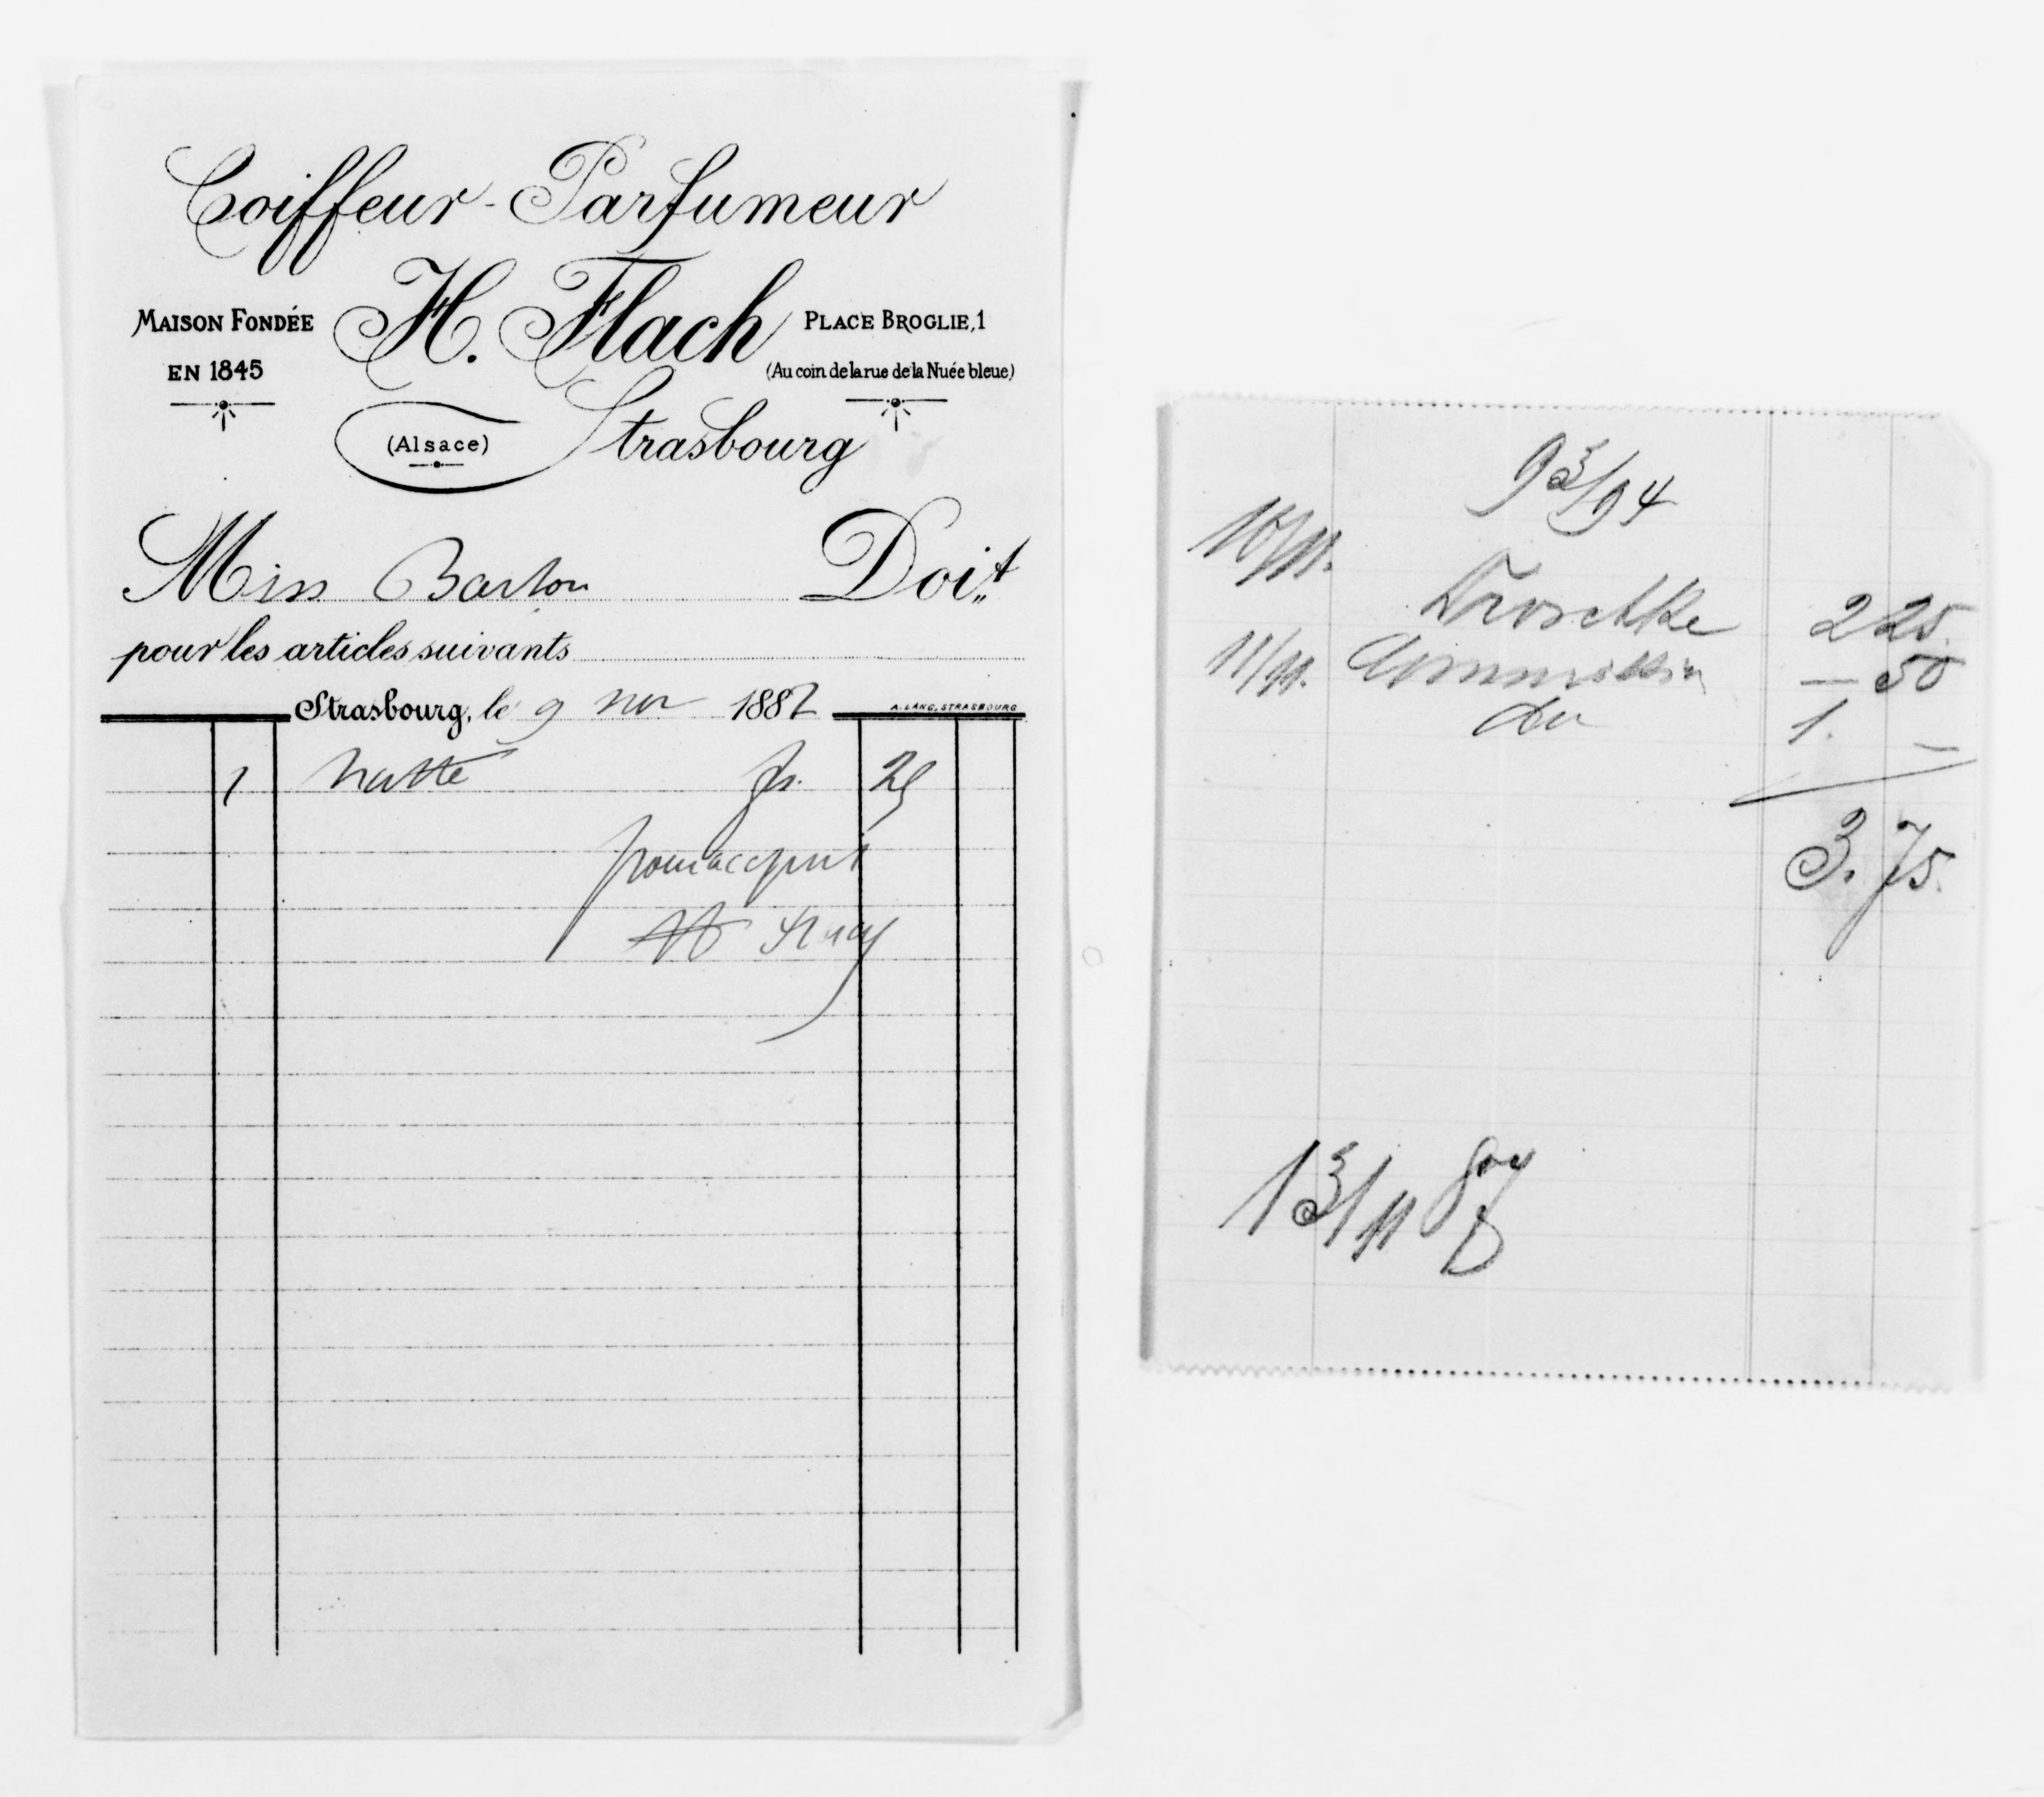 Coiffeur-Parfumeur
MAISON FONDÉE
EN 1845
H. Flach
PLACE BROGLIE, 1
(Au coin de la rue de la Nuée bleue)
(Alsace)
Strasbourg
Miss Barton Doit
pour les articles suivants
Strasbourg, le 9 nov 1887
A. LANG, STRASBOURG
1 natte fr. 25
pour acquit
H Flach
93/94
10/11.
Droschke 2 25
11/11. Commission — 50
do 1. —
3.75.
13/11 87